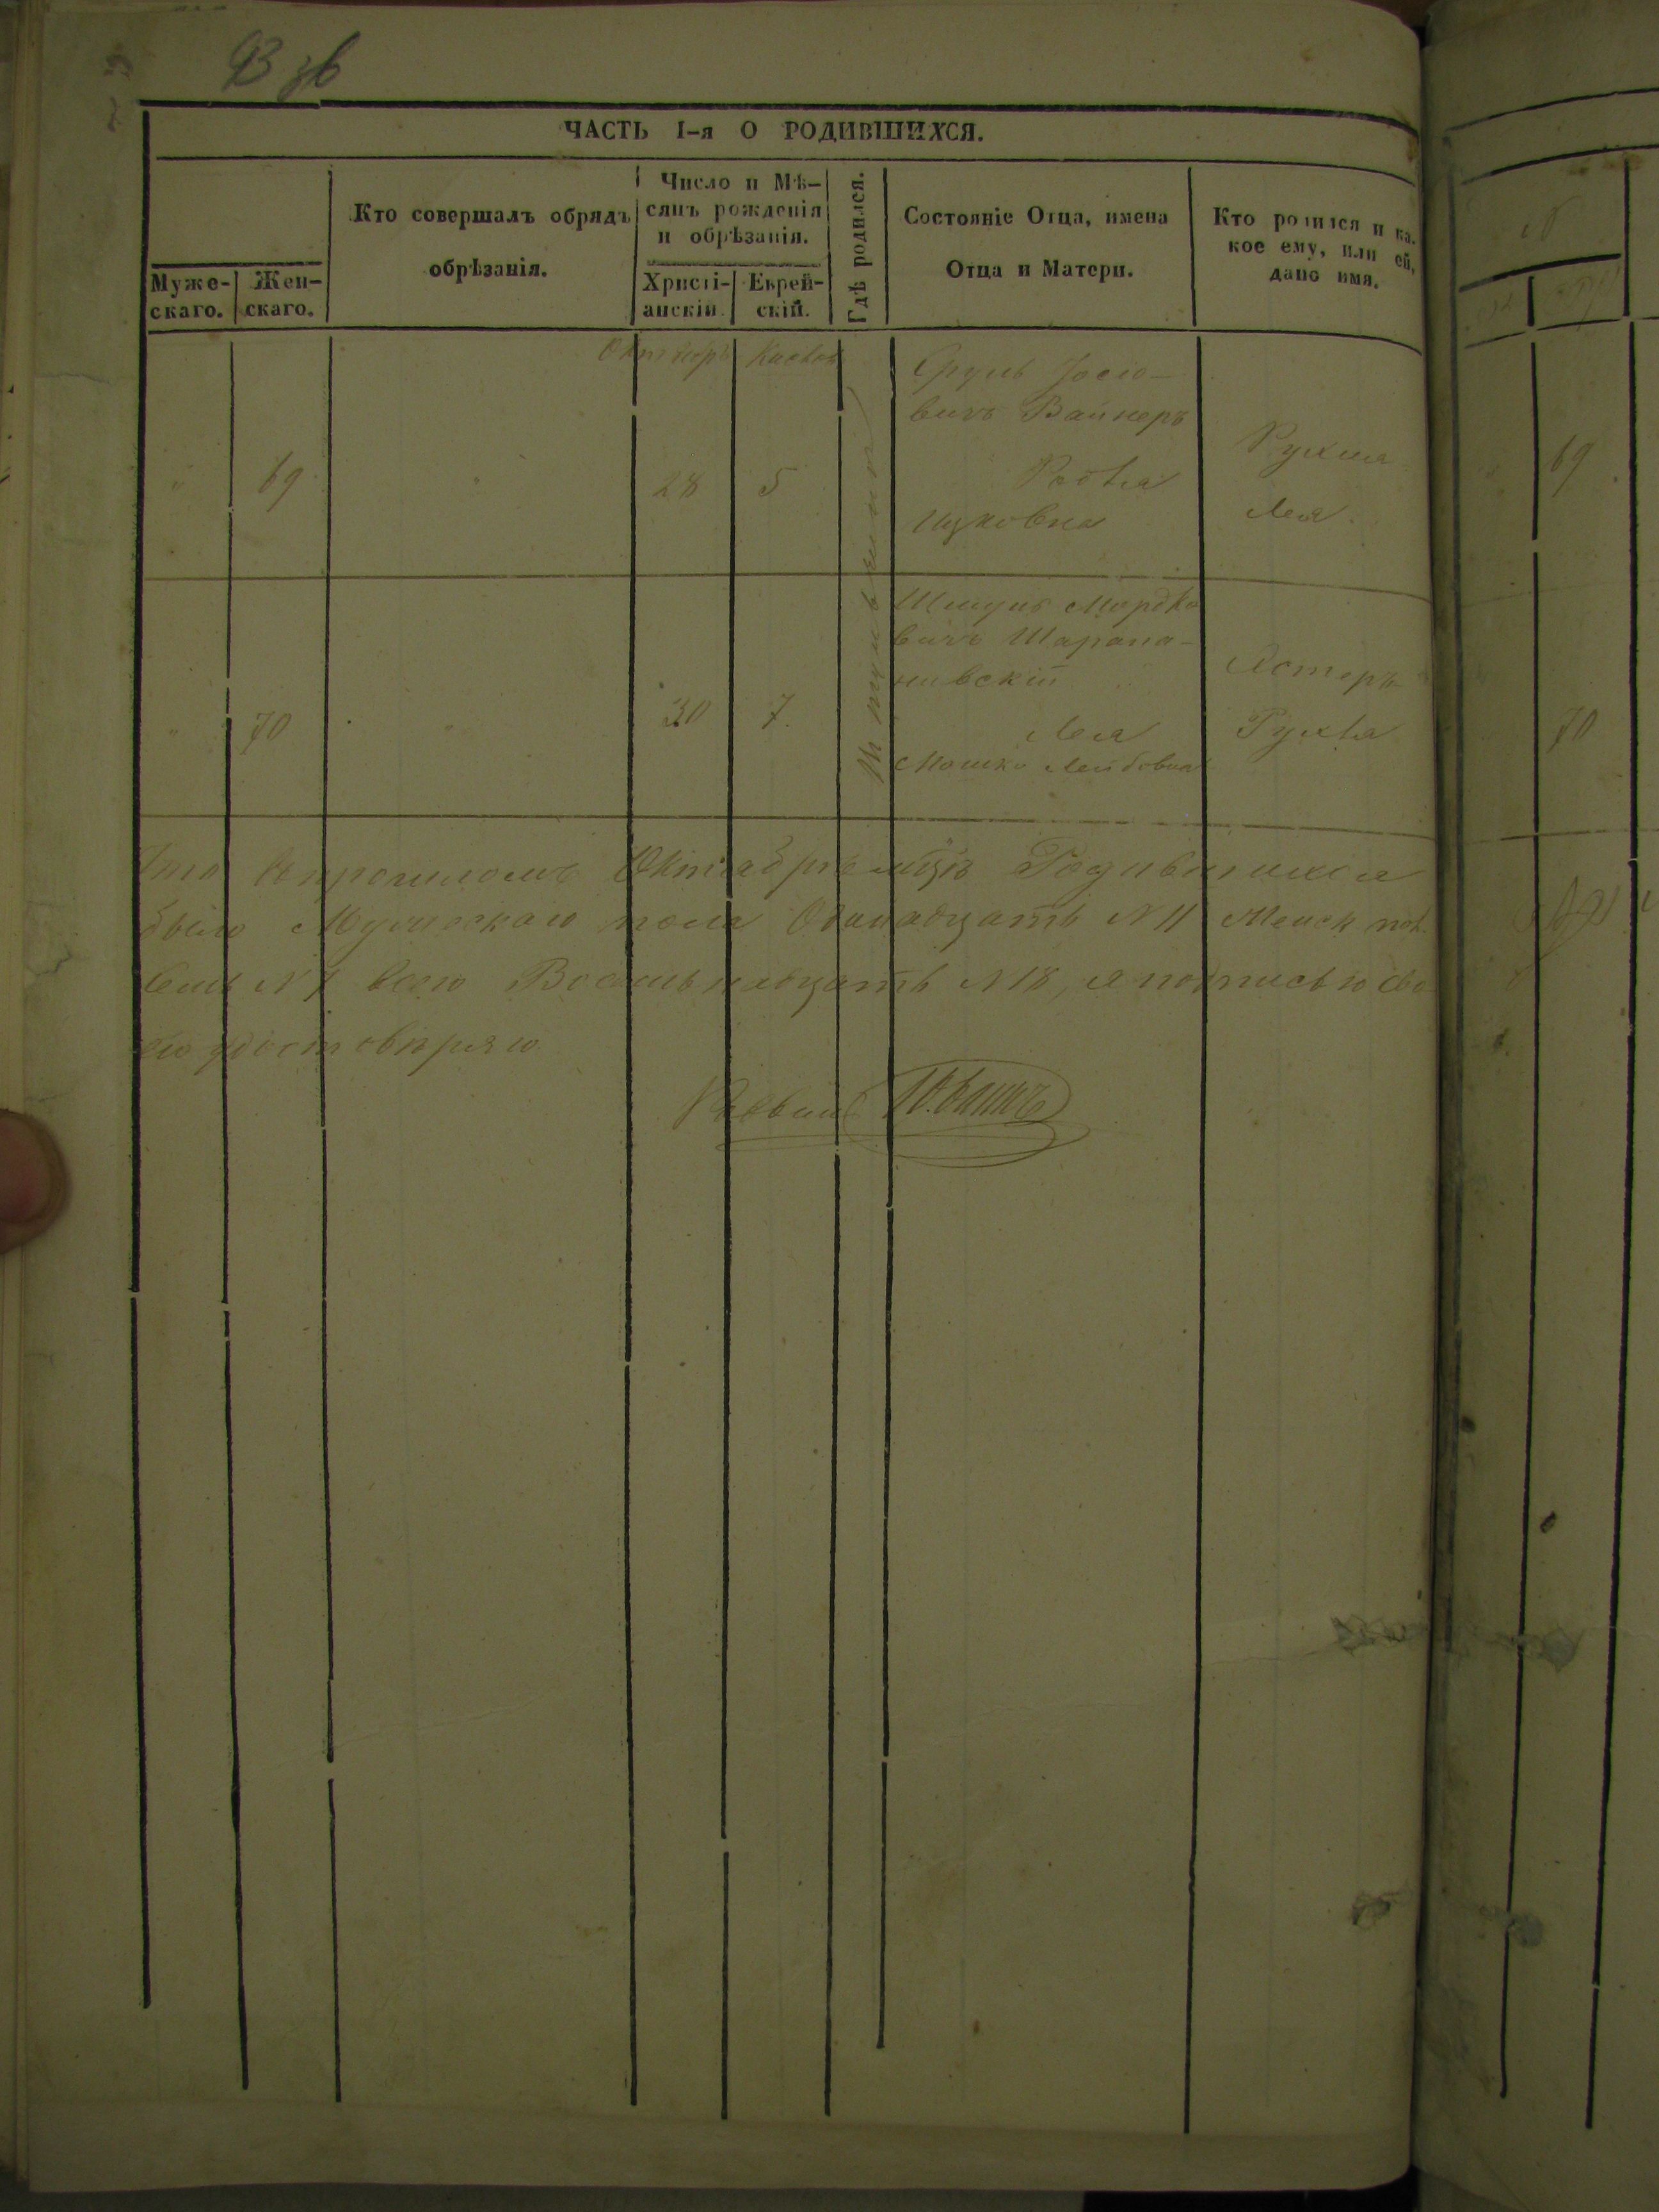 93 зв
ЧАСТЬ I-я О РОДИВШИХСЯ.
Муже-
скаго.
Жен-
скаго.
Кто совершалъ обрядъ
обрѣзанія.
Число и Мѣ-
сяцъ рожденія
и обрѣзанія.
Христі-
анскій.
Еврей-
скій.
Гдѣ родился.
Состояніе Отца, имена
Отца и Матери.
Кто родился и ка-
кое ему, или ей,
дано имя.
Октябрь
" 69 " 28 5
Сруль Іосіо-
вичъ Вайнеръ
Ицковна
Рухля
Лея.
" 70 " 30 7.
Шмуль Мордко
вичъ Шарапа-
нивскій
Лея
Мошко Лейбовна
Естеръ
Рухля
Что въ прошломъ Октябрѣ мцѣ Родившихся
было Мужескаго пола Одинадцать N 11 Женск пол.
Семь N 7 всего Восемьнадцать N 18, я подписью сво
ею удостовѣряю.
Раввин
69
70